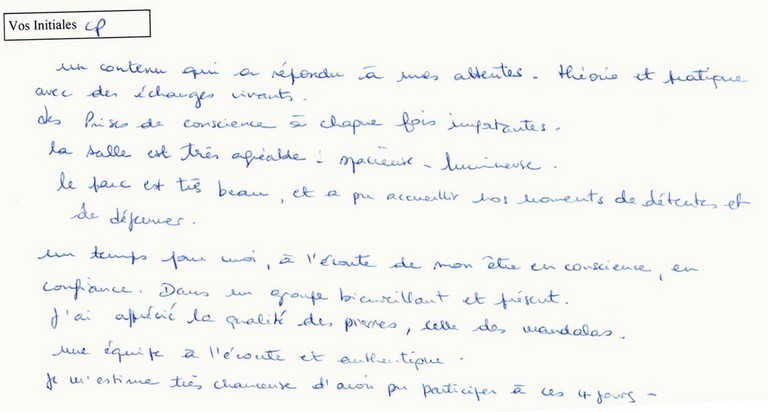 Vos Initiales CP
un contenu qui a répondu à mes attentes - théorie et pratique
avec des échanges vivants.
des Prises de conscience à chaque fois importantes.
la salle est très agréable : spacieuse - lumineuse.
le parc est très beau, et a pu accueillir nos moments de détentes et
de déjeuner.
un temps pour moi, à l'écoute de mon être en conscience, en
confiance. Dans un groupe bienveillant et présent.
J'ai apprécié la qualité des pierres, celle des mandalas.
une équipe à l'écoute et authentique.
je m'estime très chanceuse d'avoir pu participer à ces 4 jours -